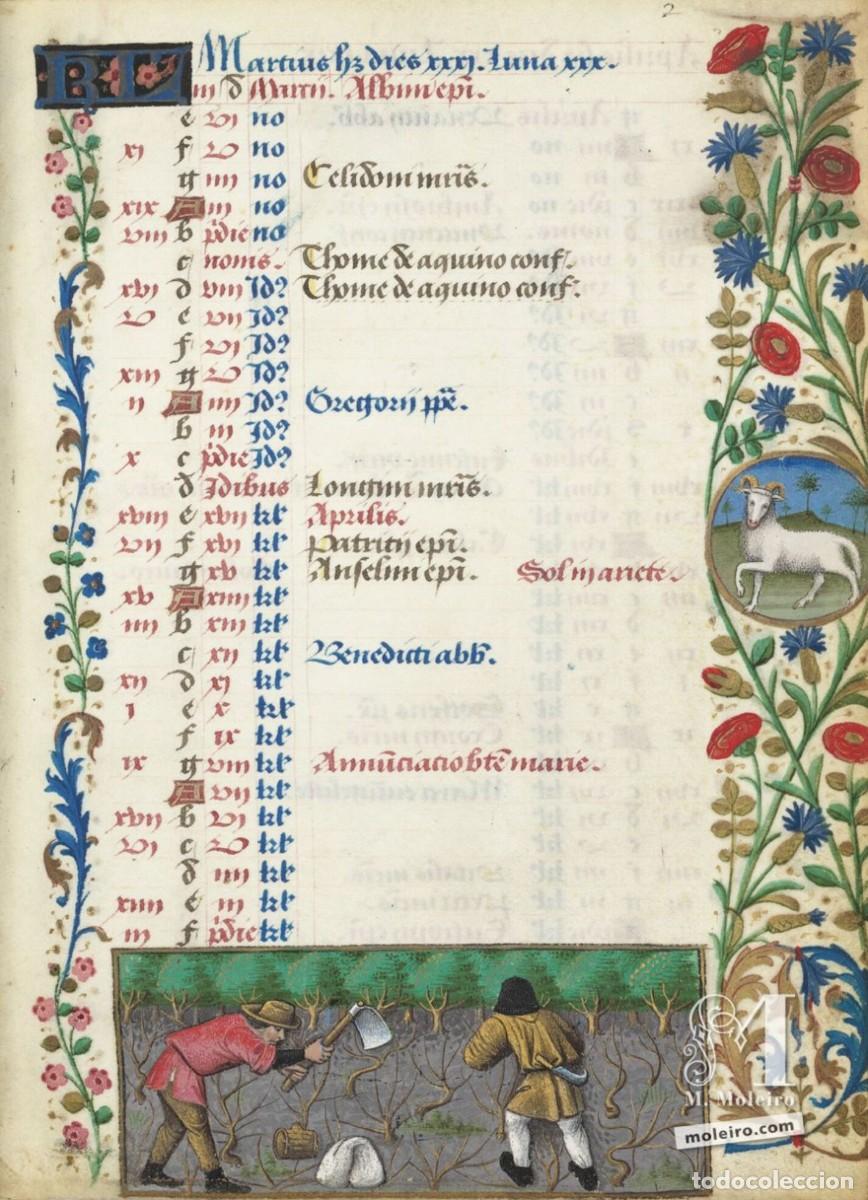 2
KL Martius hz dies xxxj. Luna xxx.
iii d Martii. Albini epi.
e vj no
xj f v no
g iiii no Celidoni mris.
xix A iii no
viii b pdie no
c nonis. Thome de aquino conf.
xvj d viii Id9 Thome de aquino conf.
v e vij Id9
f vj Id9
xiii g v Id9
ii A iiii Id9 Gregorij ppe.
b iii Id9
x c pdie Id9
d Idibus Longini mris.
xviii e xvij kl Aprilis.
vij f xvj kl Patricij epi.
g xv kl Anselmi epi. Sol in ariete.
xv A xiiii kl
iiii b xiii kl
c xij kl Benedicti abb.
xij d xj kl
i e x kl
f ix kl
ix g viii kl Annunciacio bte marie.
A vij kl
xvij b vj kl
vj c v kl
d iiii kl
xiiii e iii kl
iii f pdie kl
M
M. Moleiro
moleiro.com
todocoleccion